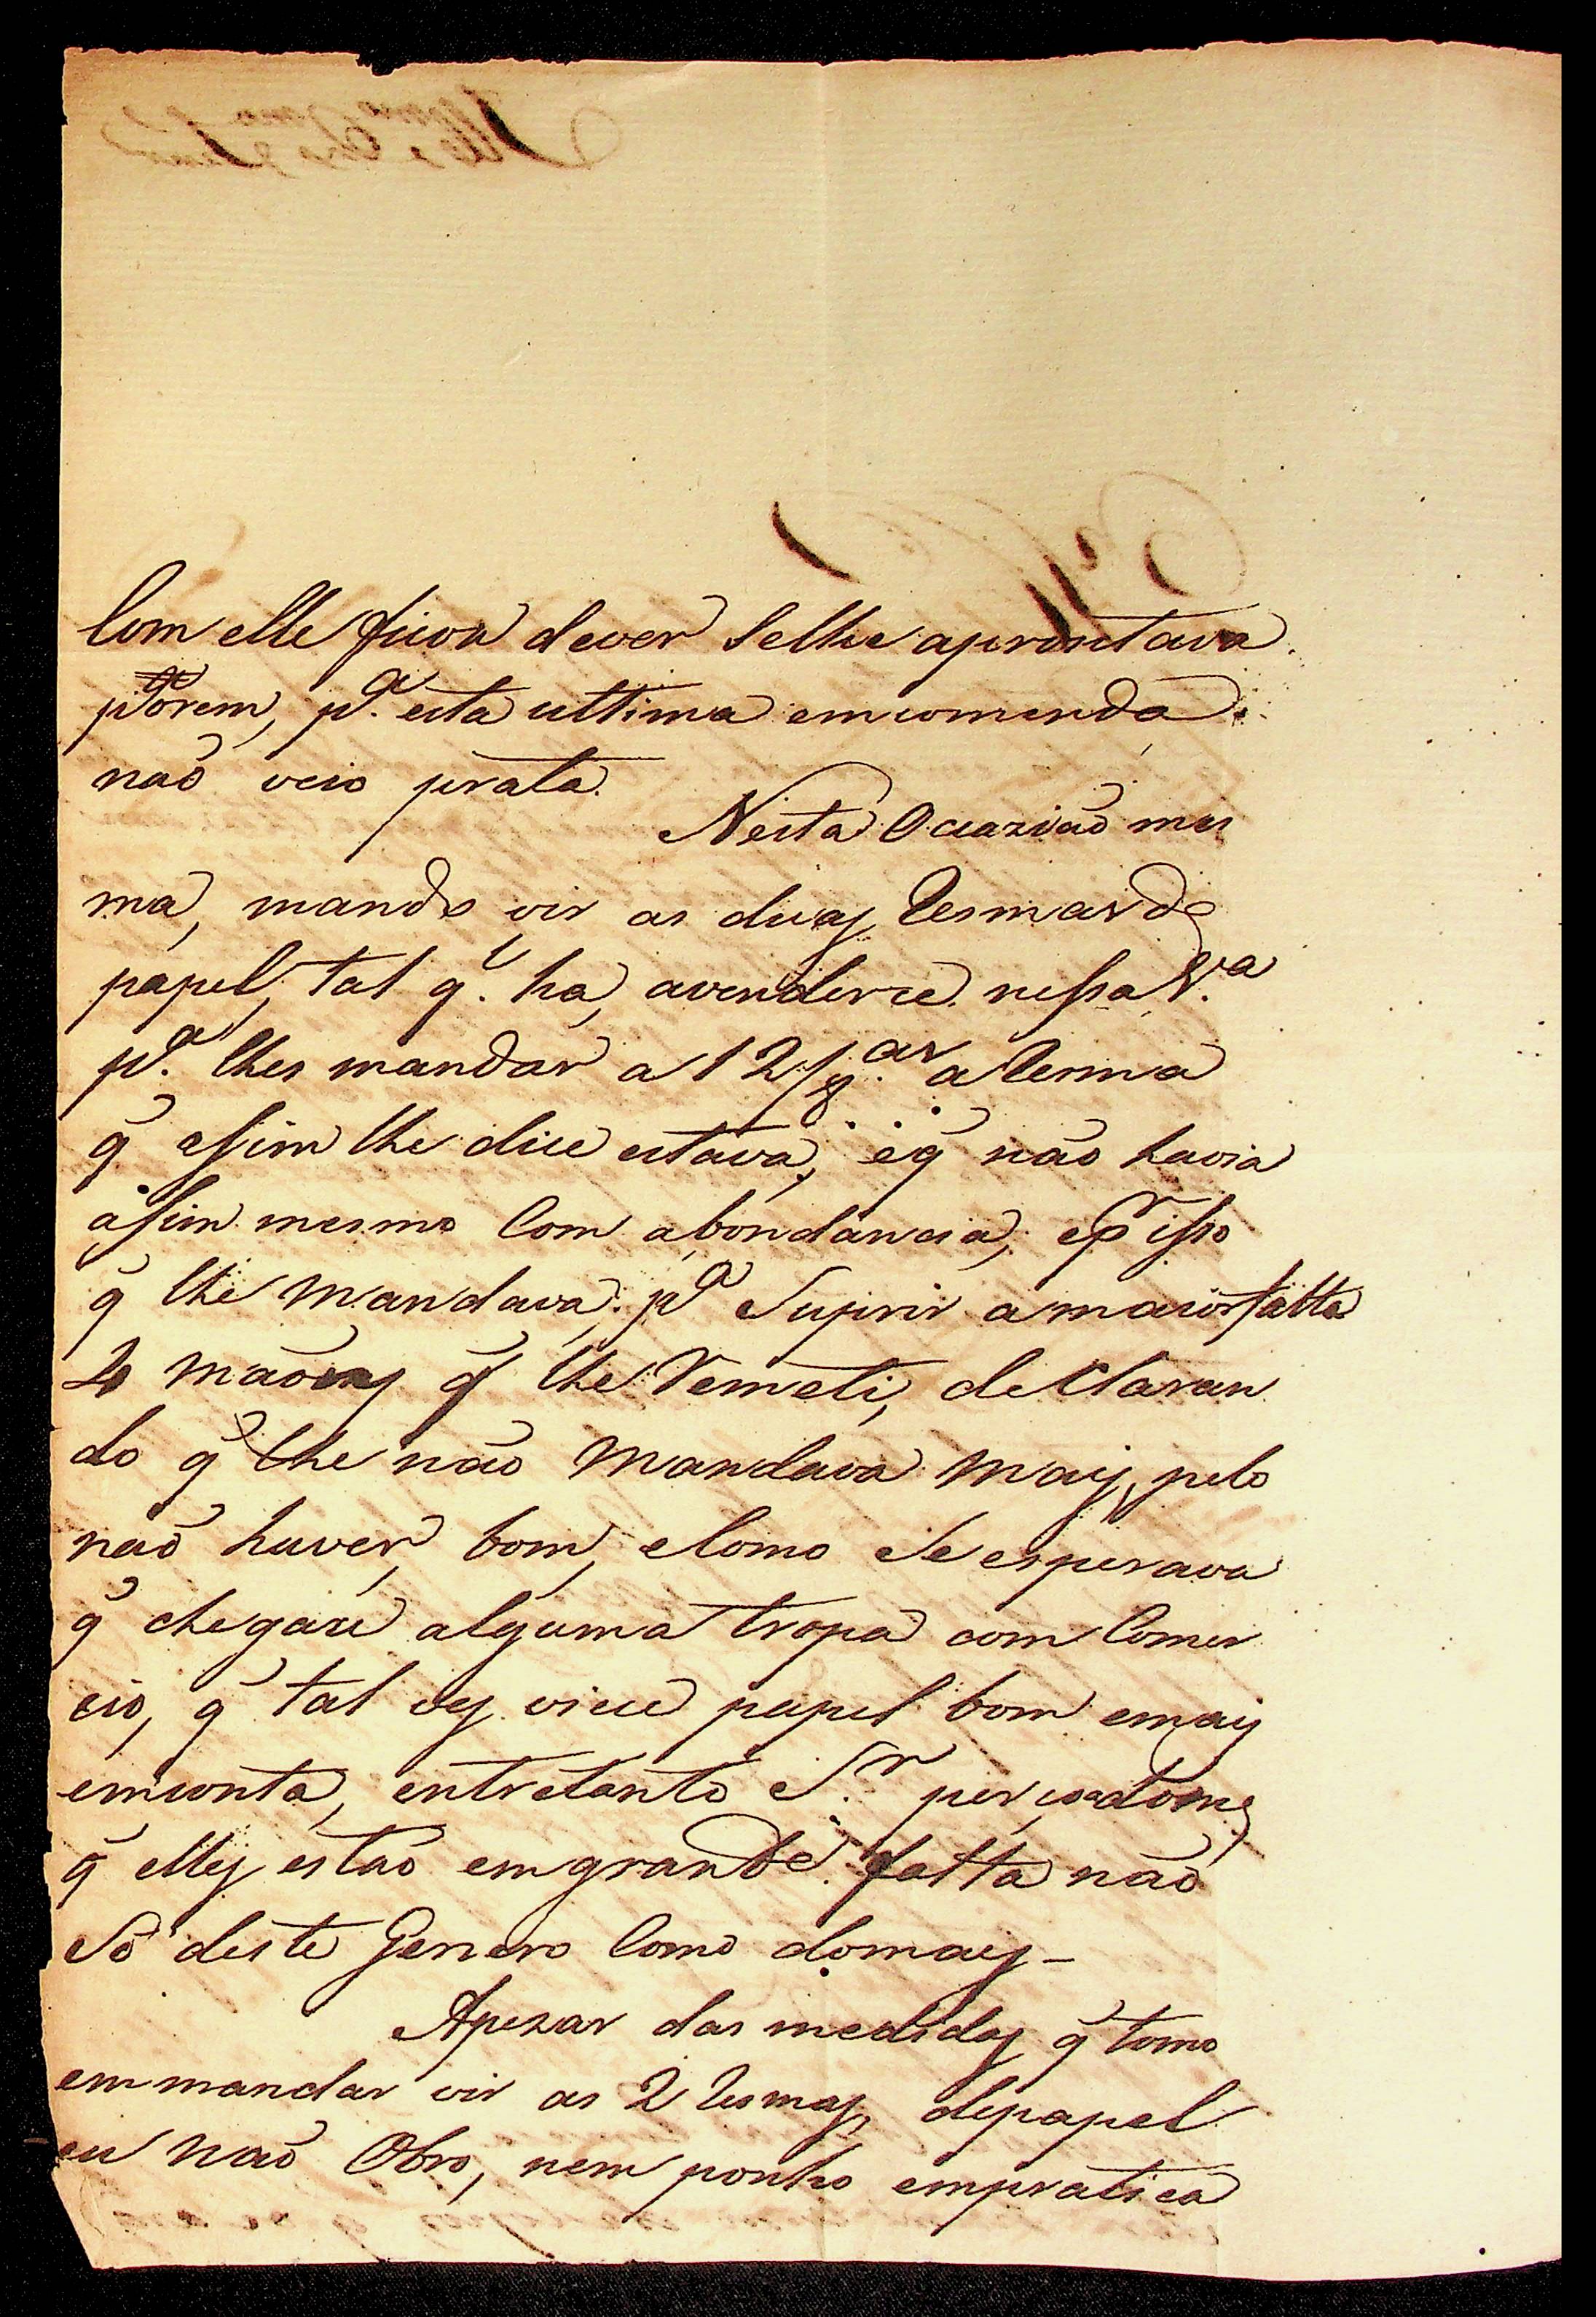 Com elle ficou dever Selhe aprontava.
porem, p.ª esta ultima emcomenda
naõ veio prata.
Nesta Ocaziaõ mes
ma, mando vir as duas Resmas de
papel, tal q.' ha, avenderse nessa V.ª
p.ª lhes mandar a 12/8.as a Resma
q̃ assim lhe dice estava, eq̃ naõ havia
assim mesmo Com abondancia, ep.r isso
q̃ lhe Mandava p.ª Suprir amaior falta
maõs q̃ lhe Remeti, deClaran
do q̃ lhe naõ Mandava Mais, pelo
naõ haver bom, eComo Se esperava
q̃ chegase alguma tropa com Comer
cio, q̃ tal ves viese papel bom emais
emconta, entretanto S.r percoadome
q̃ elles estaõ emgrande falta naõ
Só deste Genero Como domais_
Apezar das medidas q̃ tomo
emmandar vir as 2 Resmas depapel
eu Naõ Obro, nem ponho empratica